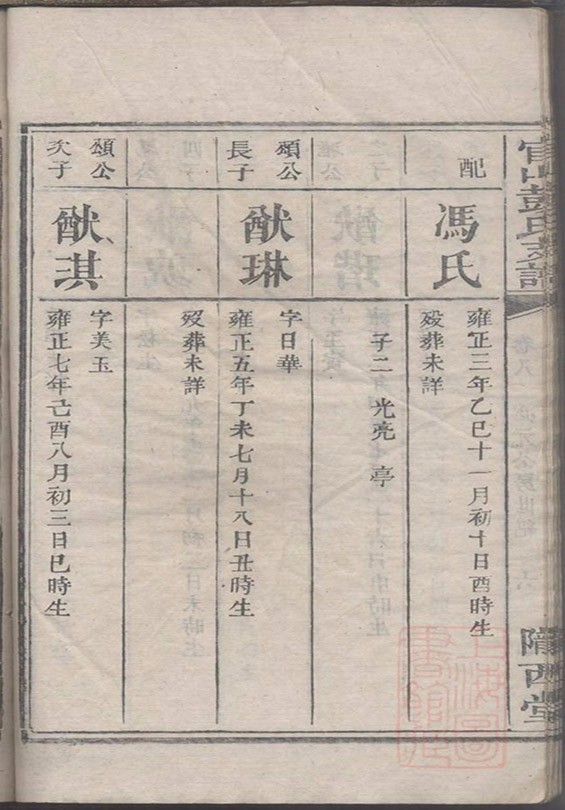 官山彭氏支譜
隴西堂
配
馮氏
雍正三年乙巳十一月初十日酉時生
歿葬未詳
子二 光亮 亭
頌公
長子
猷琳
字日華
雍正五年丁未七月十八日丑時生
歿葬未詳
頌公
次子
猷琪
字美玉
雍正七年己酉八月初三日巳時生
上海圖
書館藏